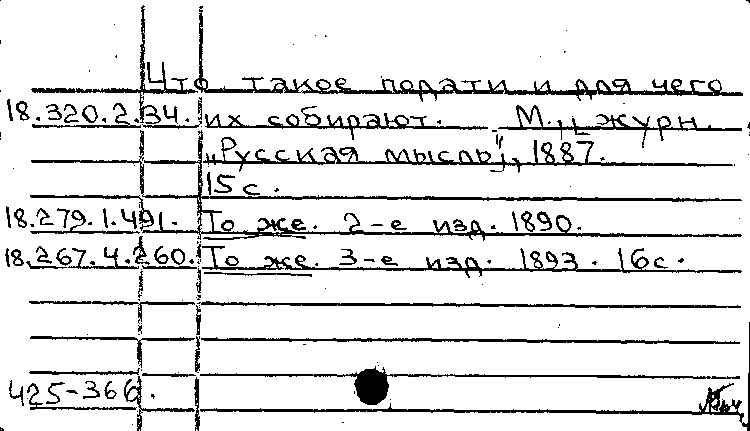 Что такое подати и для чего
18.320.2.34. их собирают. М., [журн.
„Русская мысль"], 1887.
15 с.
18.279.1.491. То же. 2-е изд. 1890.
18.267.4.260. То же. 3-е изд. 1893. 16с.
425-366.